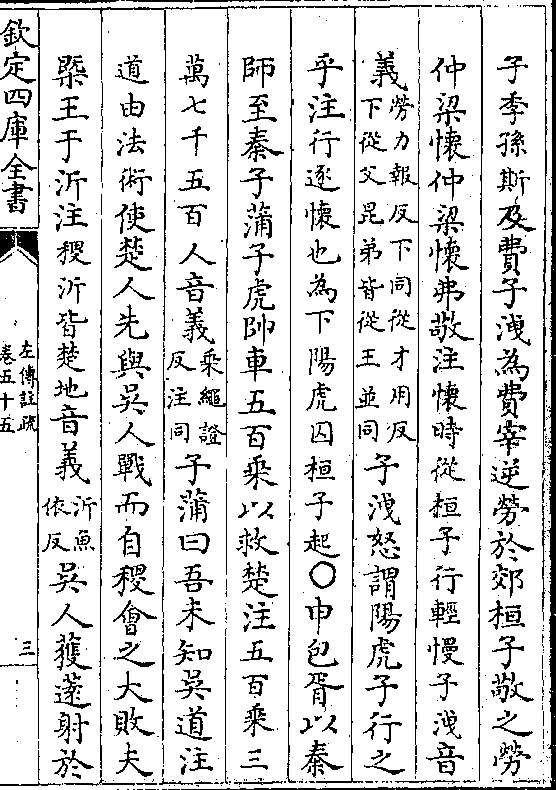 子季孫斯及費子洩為費宰逆勞於郊桓子敬之勞
仲梁懷仲梁懷弗敬注懷時從桓子行輕慢子洩音
義勞力報反下同從才用反下從父昆弟皆從王並同子洩怒謂陽虎子行之
乎注行逐懷也為下陽虎囚桓子起○申包胥以秦
師至秦子蒲子虎帥車五百乘以救楚注五百乘三
萬七千五百人音義乘繩證反注同子蒲曰吾未知吳道注
道由法術使楚人先與吳人戰而自稷會之大敗夫
㮣王于沂注稷沂皆楚地音義沂魚依反吳人獲薳射於
欽定四庫全書
左傳註疏
卷五十五
三